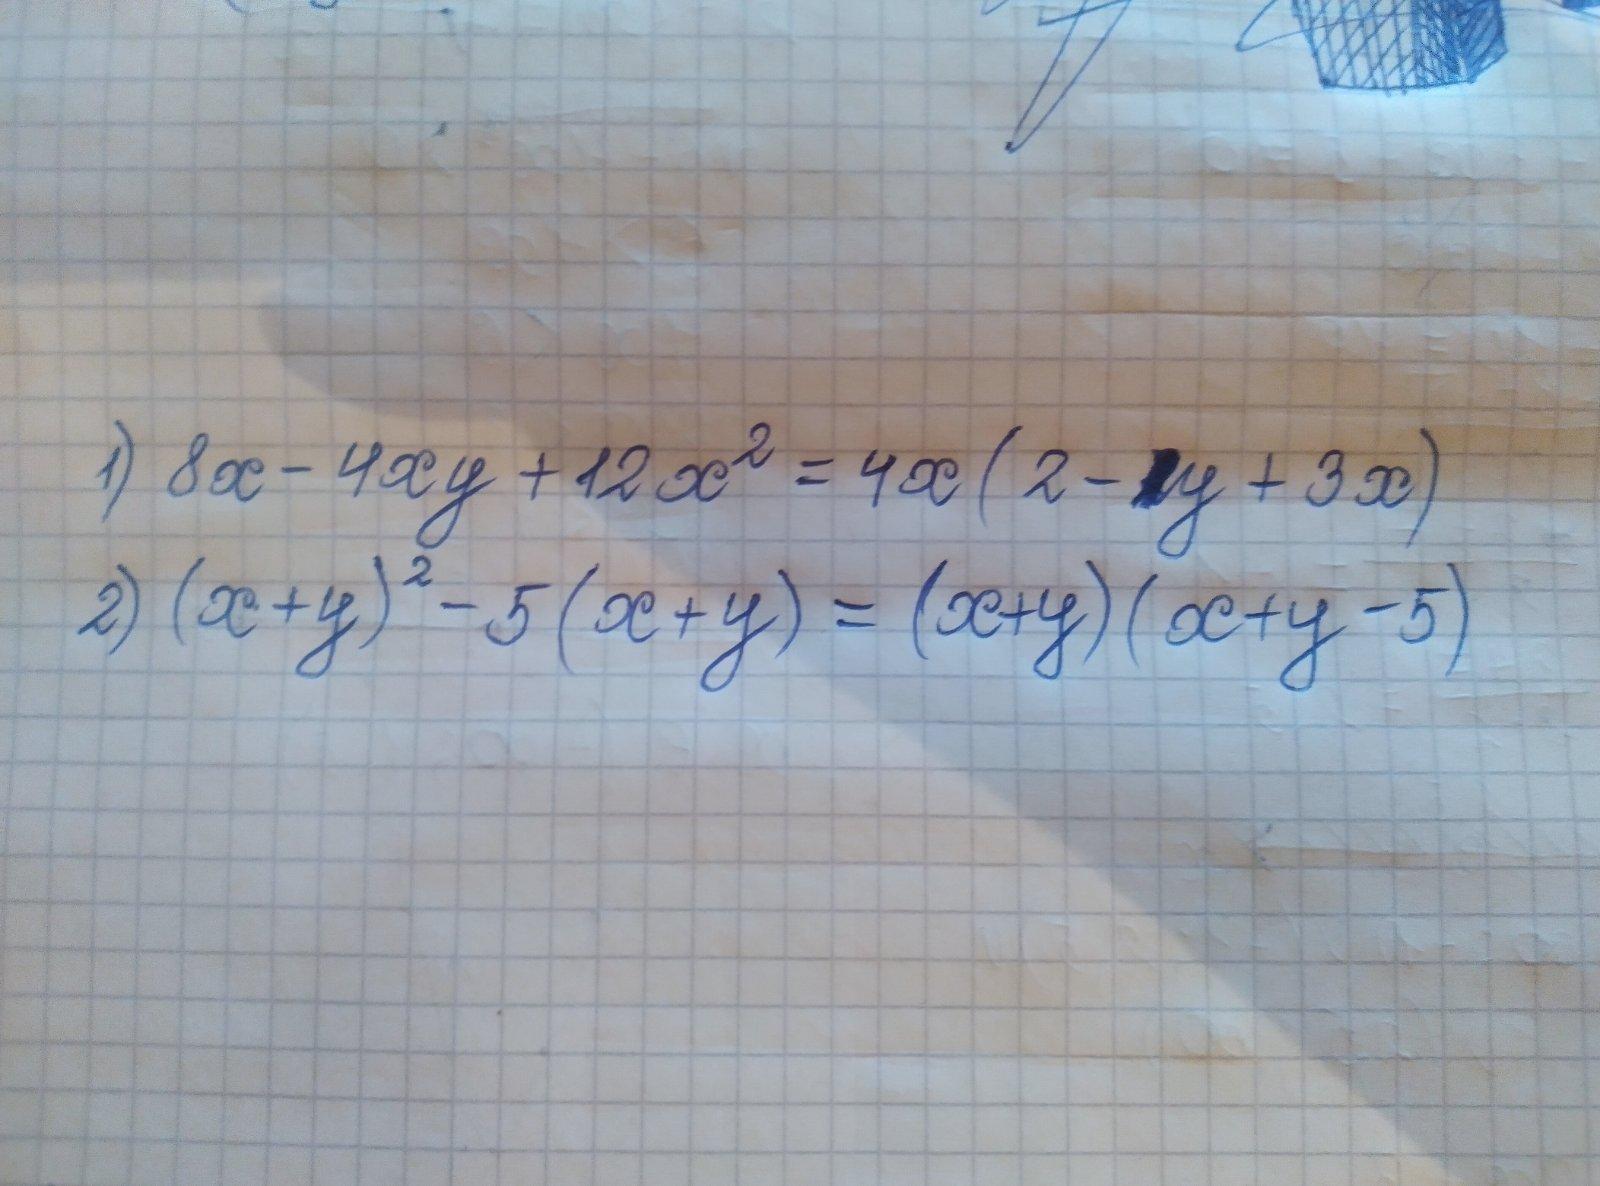 1) 8x - 4xy + 12x² = 4x(2 - y + 3x)
2) (x+y)² - 5(x+y) = (x+y)(x+y-5)